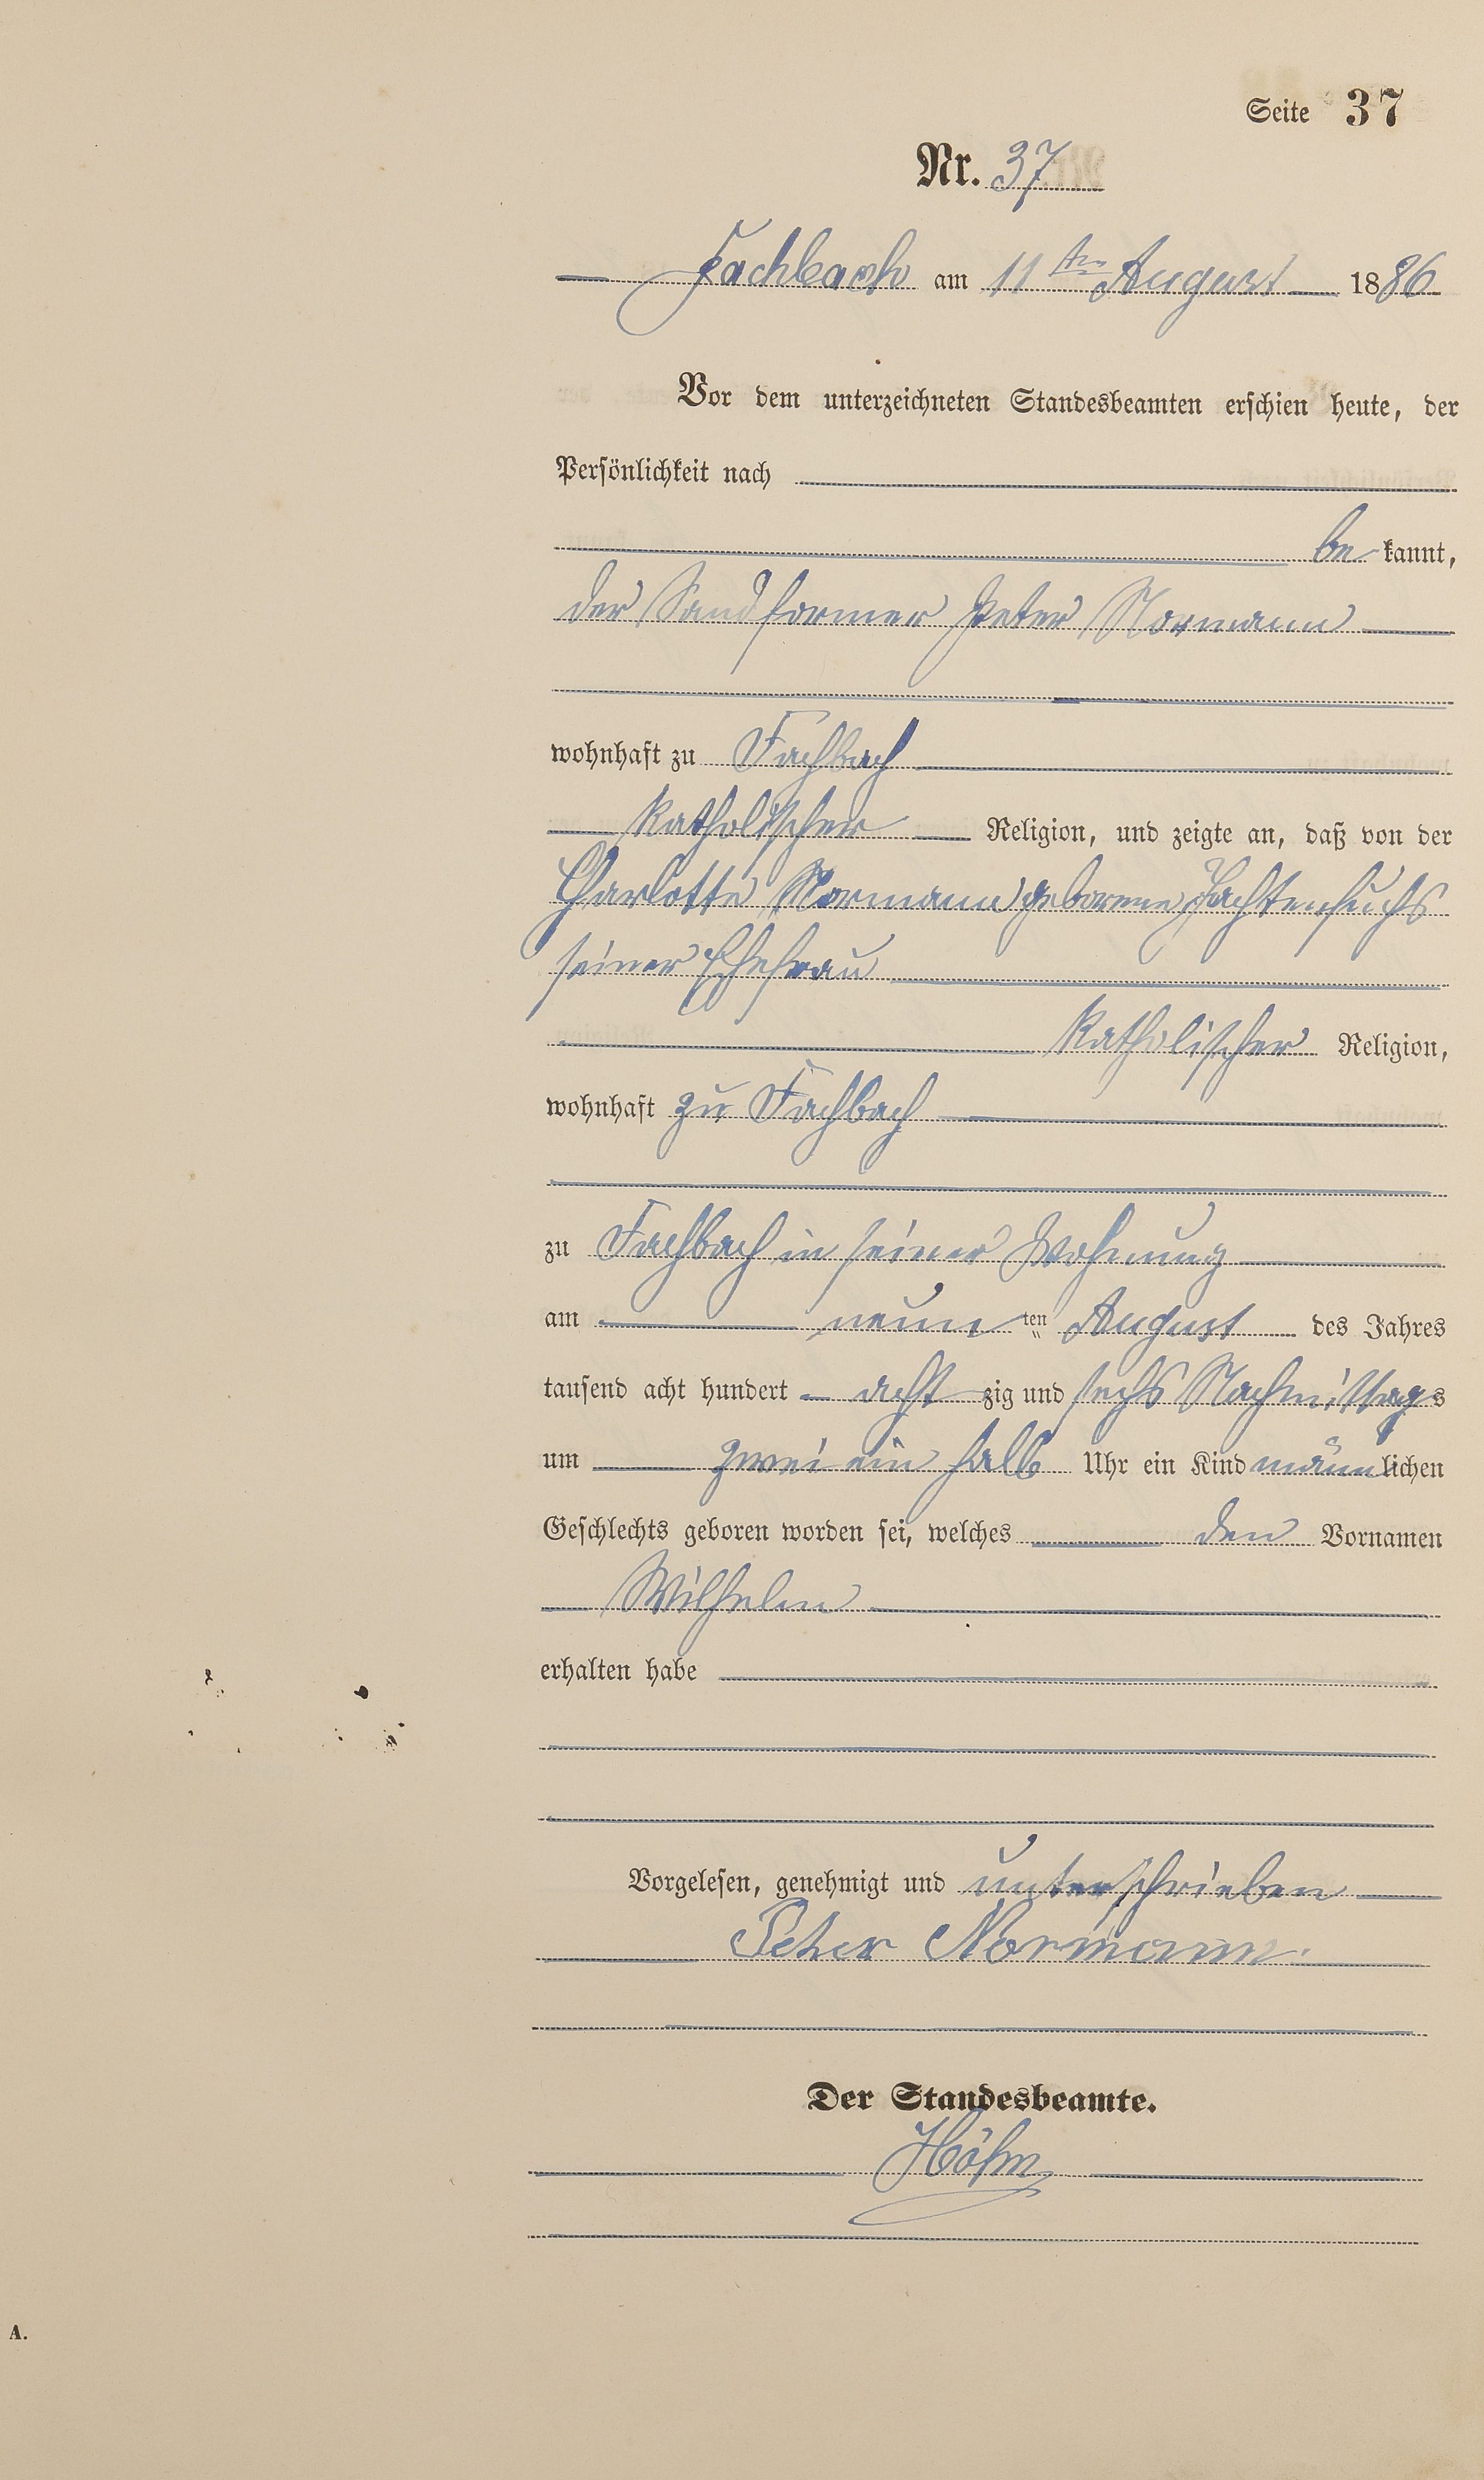 Seite 37
Nr. 37
Fachbach am 11ten August 1886
Vor dem unterzeichneten Standesbeamten erschien heute, der
Persönlichkeit nach
be kannt,
der Sandformer Peter Normann
wohnhaft zu Fachbach
katholischer Religion, und zeigte an, daß von der
Charlotte Normann geborene
seiner Ehefrau
katholischer Religion,
wohnhaft zu Fachbach
zu Fachbach in seiner Wohnung
am neun ten August des Jahres
tausend acht hundert acht zig und sechs Nachmittags
um zwei ein halb Uhr ein Kind männlichen
Geschlechts geboren worden sei, welches den Vornamen
Wilhelm
erhalten habe
Vorgelesen, genehmigt und unterschrieben
Peter Normann.
Der Standesbeamte.
Höhn
A.